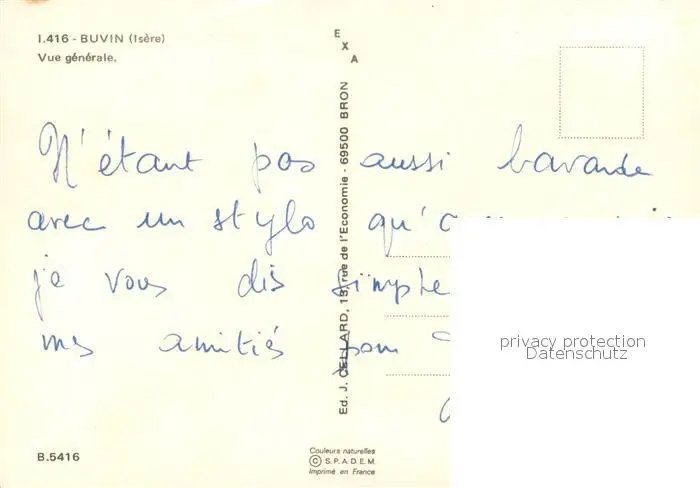 I.416 - BUVIN (Isère)
Vue générale.
EXA
Ed. J. CELLARD, 13, rue de l'Economie - 69500 BRON
N'étant pas aussi bavarde
avec un stylo
je vous dis
mes amitiés
privacy protection
Datenschutz
B.5416
Couleurs naturelles
© S.P.A.D.E.M.
Imprimé en France